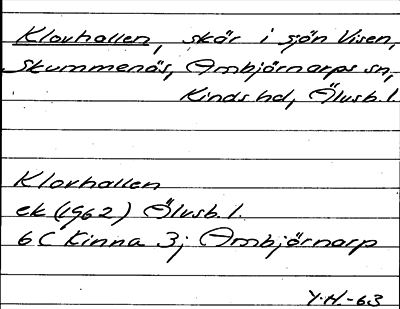 Klovhallen, skär i sjön Visen,
Skummenäs, Ambjörnarps sn,
Kinds hd, Älvsb. l.
Klovhallen
ek (1962) Älvsb. l.
6 C Kinna 3j Ambjörnarp
Y.H.-63